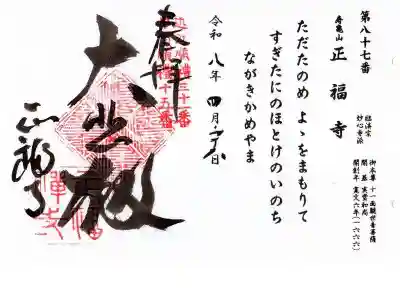 第八十七番
寿亀山
正福寺
臨済宗
妙心寺派
御本尊 十一面観世音菩薩
開基 実堂和尚
開創年 寛文六年(一六六六)
ただたのめ よゝをまもりて
すぎたにのほとけのいのち
ながきかめやま
令和八年四月
日
奉拝
大悲殿
正福寺